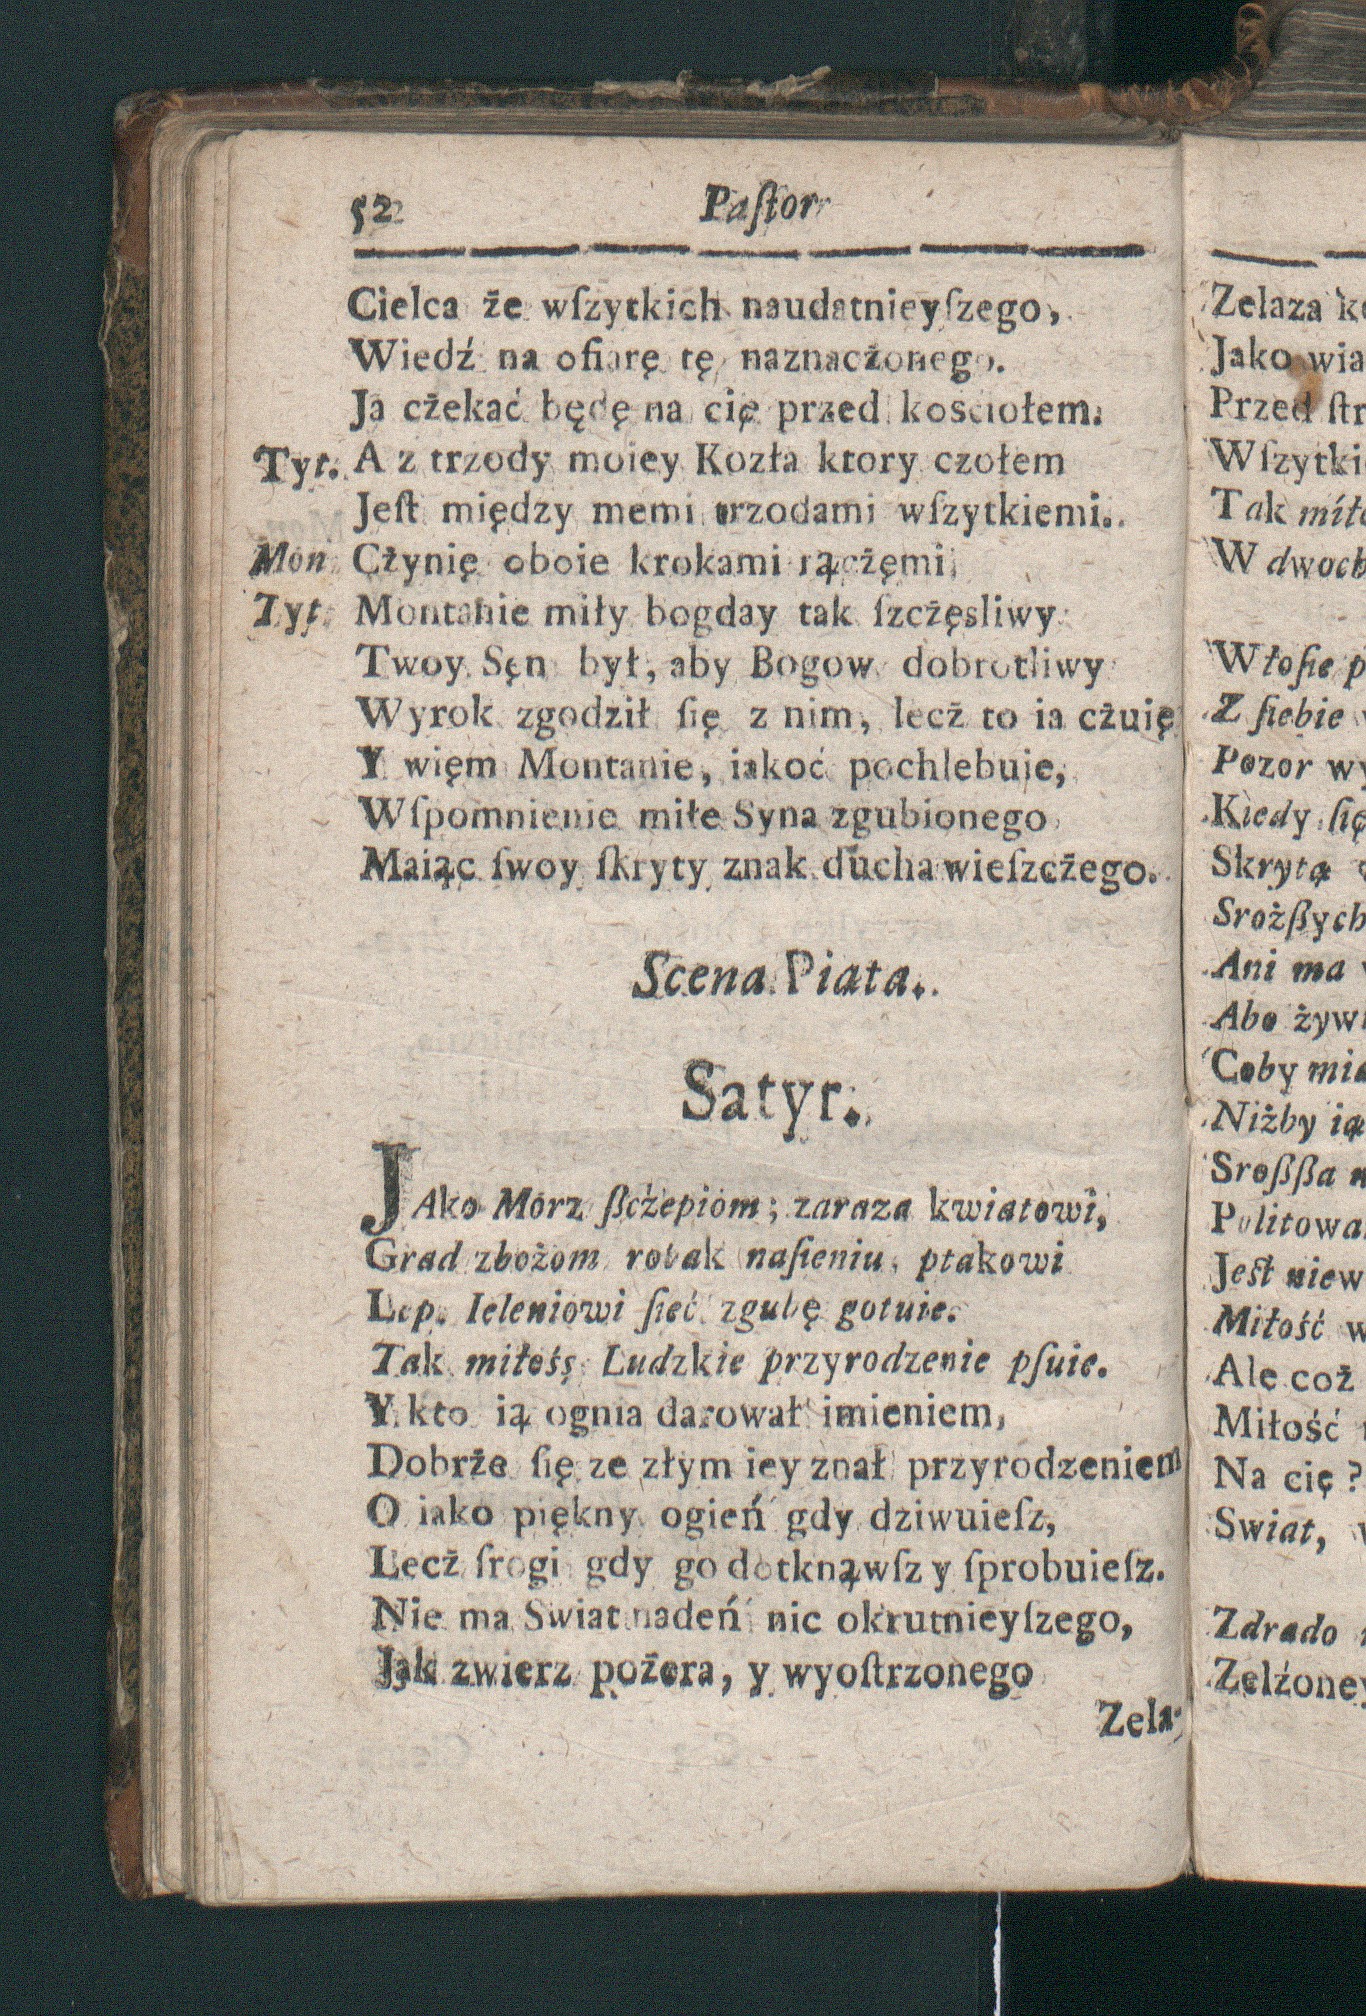 52 Paſtor
Cielca że wſzytkich naudatnieyſzego,
Wiedź na ofiarę tę naznacżonego.
Ja cżekać będę na cię przed kosciołem.
Tyt. A z trzody moiey Kozła ktory czołem
Jeſt między memi trzodami wſzytkiemi.
Mon Cżynię oboie krokami rącżęmi
Tyt Montanie miły bogday tak ſzcżęsliwy
Twoy Sęn był, aby Bogow dobrotliwy
Wyrok zgodził ſię z nim, lecż to ia cżuię
Y więm Montanie, iakoć pochlebuie,
Wſpomnienie miłe Syna zgubionego
Maiąc ſwoy ſkryty znak ducha wieſzcżego.
Scena Piata.
Satyr.
JAko Morz ßcżepiom; zaraza kwiatowi,
Grad zbożom robak naſieniu, ptakowi
Lep. Ieleniowi ſieć zgubę gotuie.
Tak miłośş Ludzkie przyrodzenie pſuie.
Y kto ią ognia darował imieniem,
Dobrże ſię ze złym iey znał przyrodzeniem
O iako piękny ogień gdy dziwuieſz,
Lecż ſrogi gdy go dotknąwſz y ſprobuieſz.
Nie ma Swiat nadeń nic okrutnieyſzego,
Jak zwierz pożera, y wyoſtrzonego
Zela-
Zelaza
Jako
Przed
Tak
W
Z ſiebie
Pozor
Kiedy ſię
Skrytą
Ani ma
Abo
Coby
Niżby
Sroßßa
Jeſt
Miłość
Ale coż
Miłość
Na cię?
Swiat,
Zdrado